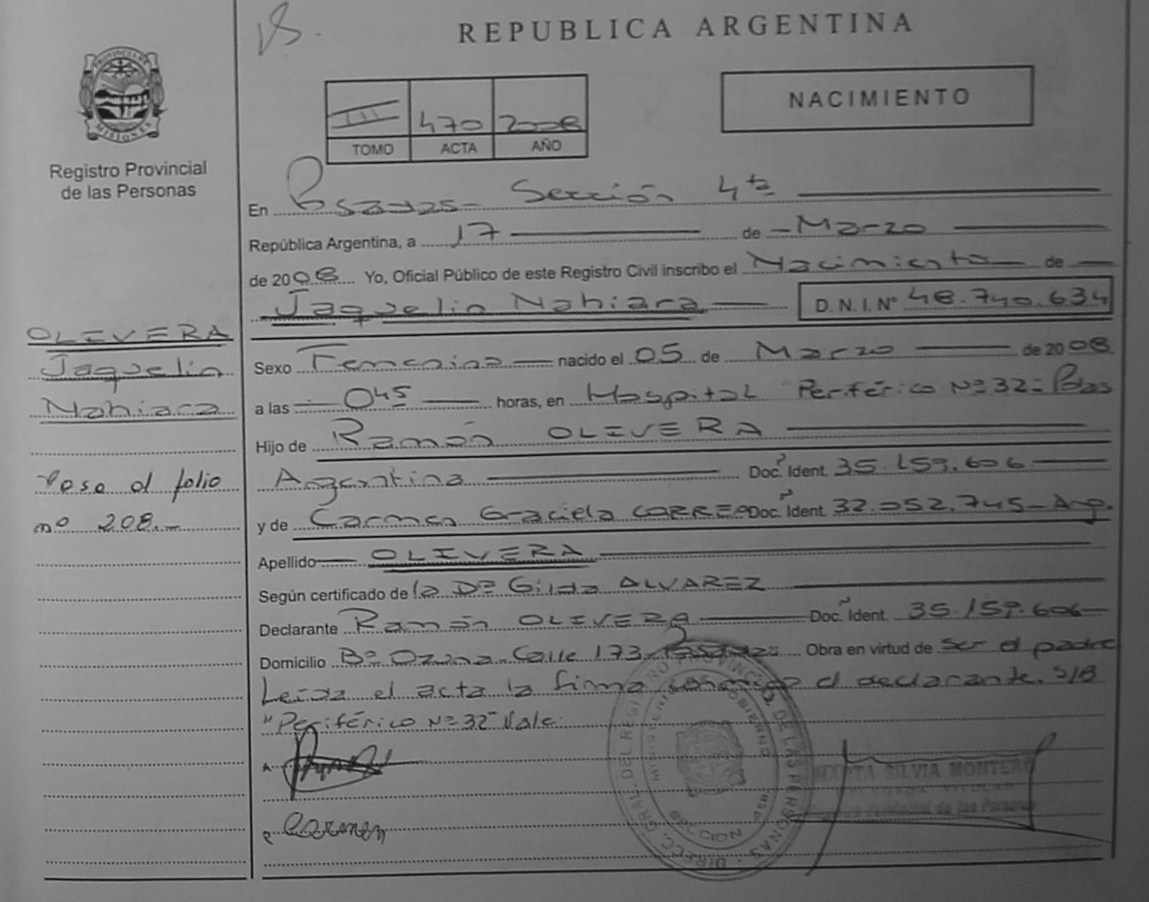 REPUBLICA ARGENTINA
PROVINCIA DE MISIONES
Registro Provincial
de las Personas
III 470 2008
TOMO ACTA AÑO
NACIMIENTO
En Posadas- Sección 4ta
República Argentina, a 17 de Marzo
de 2008 Yo, Oficial Público de este Registro Civil inscribo el Nacimiento de
Jaquelin Nahiara D.N.I. N° 48.740.634
OLIVERA
Jaquelin
Nahiara
Sexo Femenino nacido el 05 de Marzo de 2008
a las 045 horas, en Hospital "Periférico Nº 32- Pdas
Hijo de Ramón OLIVERA
Argentina Doc. Ident. 35.159.606
y de Carmen Graciela CORREA Doc. Ident. 32.052.745- Arg.
Pase al folio
nº 208.-
Apellido OLIVERA
Según certificado de la Dra Gilda ALVAREZ
Declarante Ramón OLIVERA Doc. Ident. 35.159.606
Domicilio Bº Calle 173, Posadas Obra en virtud de ser el padre
Leída el acta la firma conmigo el declarante. S/B
"Periférico Nº 32" Vale.
Carmen
DIRECC. GRAL. DEL REGISTRO PROVINCIAL DE LAS PERSONAS
MARTA SILVIA MONTERO
Registro Provincial de las Personas